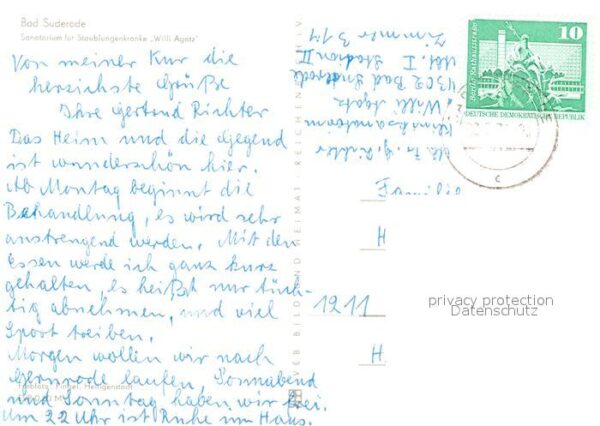 Bad Suderode
Sanatorium für Staublungenkranke „Willi Agatz"
Von meiner Kur die
herzichste Grüße
Ihre Gertrud Richter
Das Heim und die Gegend
ist wunderschön hier.
Ab Montag beginnt die
Behandlung, es wird sehr
anstrengend werden. Mit dem
Essen werde ich ganz kurz
gehalten, es heißt nur tüch-
tig abnehmen, und viel
Sport treiben.
Morgen wollen wir nach
Gernrode laufen, Sonnabend
und Sonntag haben wir frei.
Um 22 Uhr ist Ruhe im Haus.
Foto: Finkel, Heiligenstadt
VEB BILD UND HEIMAT REICHENBACH I. V.
Abs. Fr. G. Richter
Klinksanatorium
„Willi Agatz
4302 Bad Suderode
Abt. I Station II
Zimmer 317
10
Berlin, Rathausstraße
DEUTSCHE DEMOKRATISCHE REPUBLIK
c
Familie
H
1211
H
privacy protection
Datenschutz